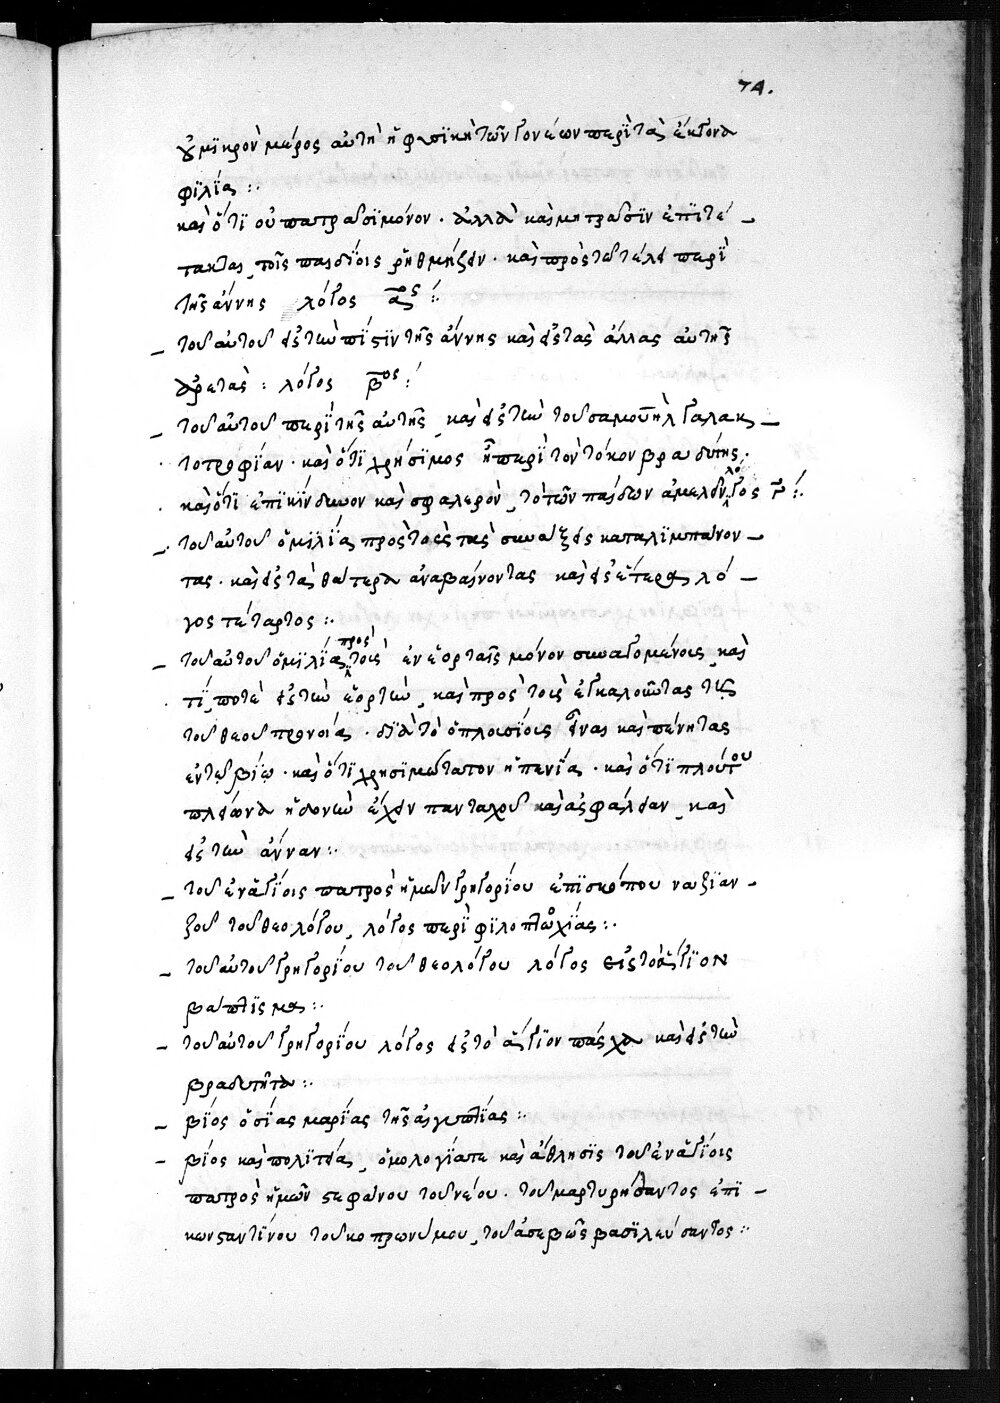 74.
οὐ μϊκρὸν μέρος αὐτὴ ἡ φυσϊκὴ τῶν γονέων περὶ τὰ ἔκγονα
φϊλΐα :.
καὶ ὅτϊ οὐ πατρασὶ μόνον . ἀλλὰ καὶ μητρασὶν ἐπϊτέ -
τακται τοῖς παιδΐοις ῥηθμήζειν . καὶ πρὸς τῶ τέλει περὶ
τῆς ἄννης λόγος αος :
- τοῦ αὐτοῦ εἰς τὴν πίστϊν τῆς ἄννης καὶ εἰς τὰς ἄλλας αὐτῆς
ἀρετάς : λόγος βος :
- τοῦ αὐτοῦ περὶ τῆς αὐτῆς καὶ εἰς τὴν τοῦ σαμουὴλ γαλακ -
τοτροφίαν . καὶ ὅτϊ χρήσιμος ἡ περὶ τὸν τόκον βραδύτης .
καὶ ὅτϊ ἐπϊκίνδυνον καὶ σφαλερὸν τὸ τῶν παίδων ἀμελεῖν λόγος γ :.
- τοῦ αὐτοῦ ὁμϊλΐα πρὸς τοὺς τὰς συνάξεις καταλϊμπάνον -
τας . καὶ εἰς τὰ θέατρα ἀναβαίνοντας καὶ εἰς ἕτερα λό -
γος τέταρτος :.
- τοῦ αὐτοῦ ὁμϊλΐα πρὸς τοὺς ἐν ἑορταῖς μόνον συναγομένοις καὶ
τί ποτέ εἰς τὴν ἑορτὴν καὶ πρὸς τοὺς ἐγκαλοῦντας τῆς
τοῦ θεοῦ προνοίας . δϊὰ τὸ ὁ πλουσΐοις εἶναι καὶ πένητας
ἐν τῷ βΐῳ . καὶ ὅτϊ χρησϊμώτατον ἡ πενΐα . καὶ ὅτϊ πλούτου
πλείωνα ἡδονὴν ἔχειν πανταχοῦ καὶ ἀσφάλειαν καὶ
εἰς τὴν ἄνναν :.
- τοῦ ἐν ἁγΐοις πατρὸς ἡμῶν γρηγορΐου ἐπϊσκόπου ναζϊαν -
ζοῦ τοῦ θεολόγου λόγος περὶ φϊλοπτωχΐας :.
- τοῦ αὐτοῦ γρηγορΐου τοῦ θεολόγου λόγος εἰς τὸ ἅγΐον
βάπτϊσμα :.
- τοῦ αὐτοῦ γρηγορΐου λόγος εἰς τὸ ἅγϊον πάσχα καὶ εἰς τὴν
βραδυτῆτα :.
- βΐος ὁσΐας μαρΐας τῆς αἰγυπτΐας :.
- βΐος καὶ πολϊτεία ὁμολογΐα τε καὶ ἄθλησϊς τοῦ ἐν ἁγΐοις
πατρὸς ἡμῶν στεφάνου τοῦ νέου . τοῦ μαρτυρήσαντος ἐπϊ -
κωνσταντΐνου τοῦ κοπρωνύμου τοῦ ἀσεβῶς βασϊλεύσαντος :.